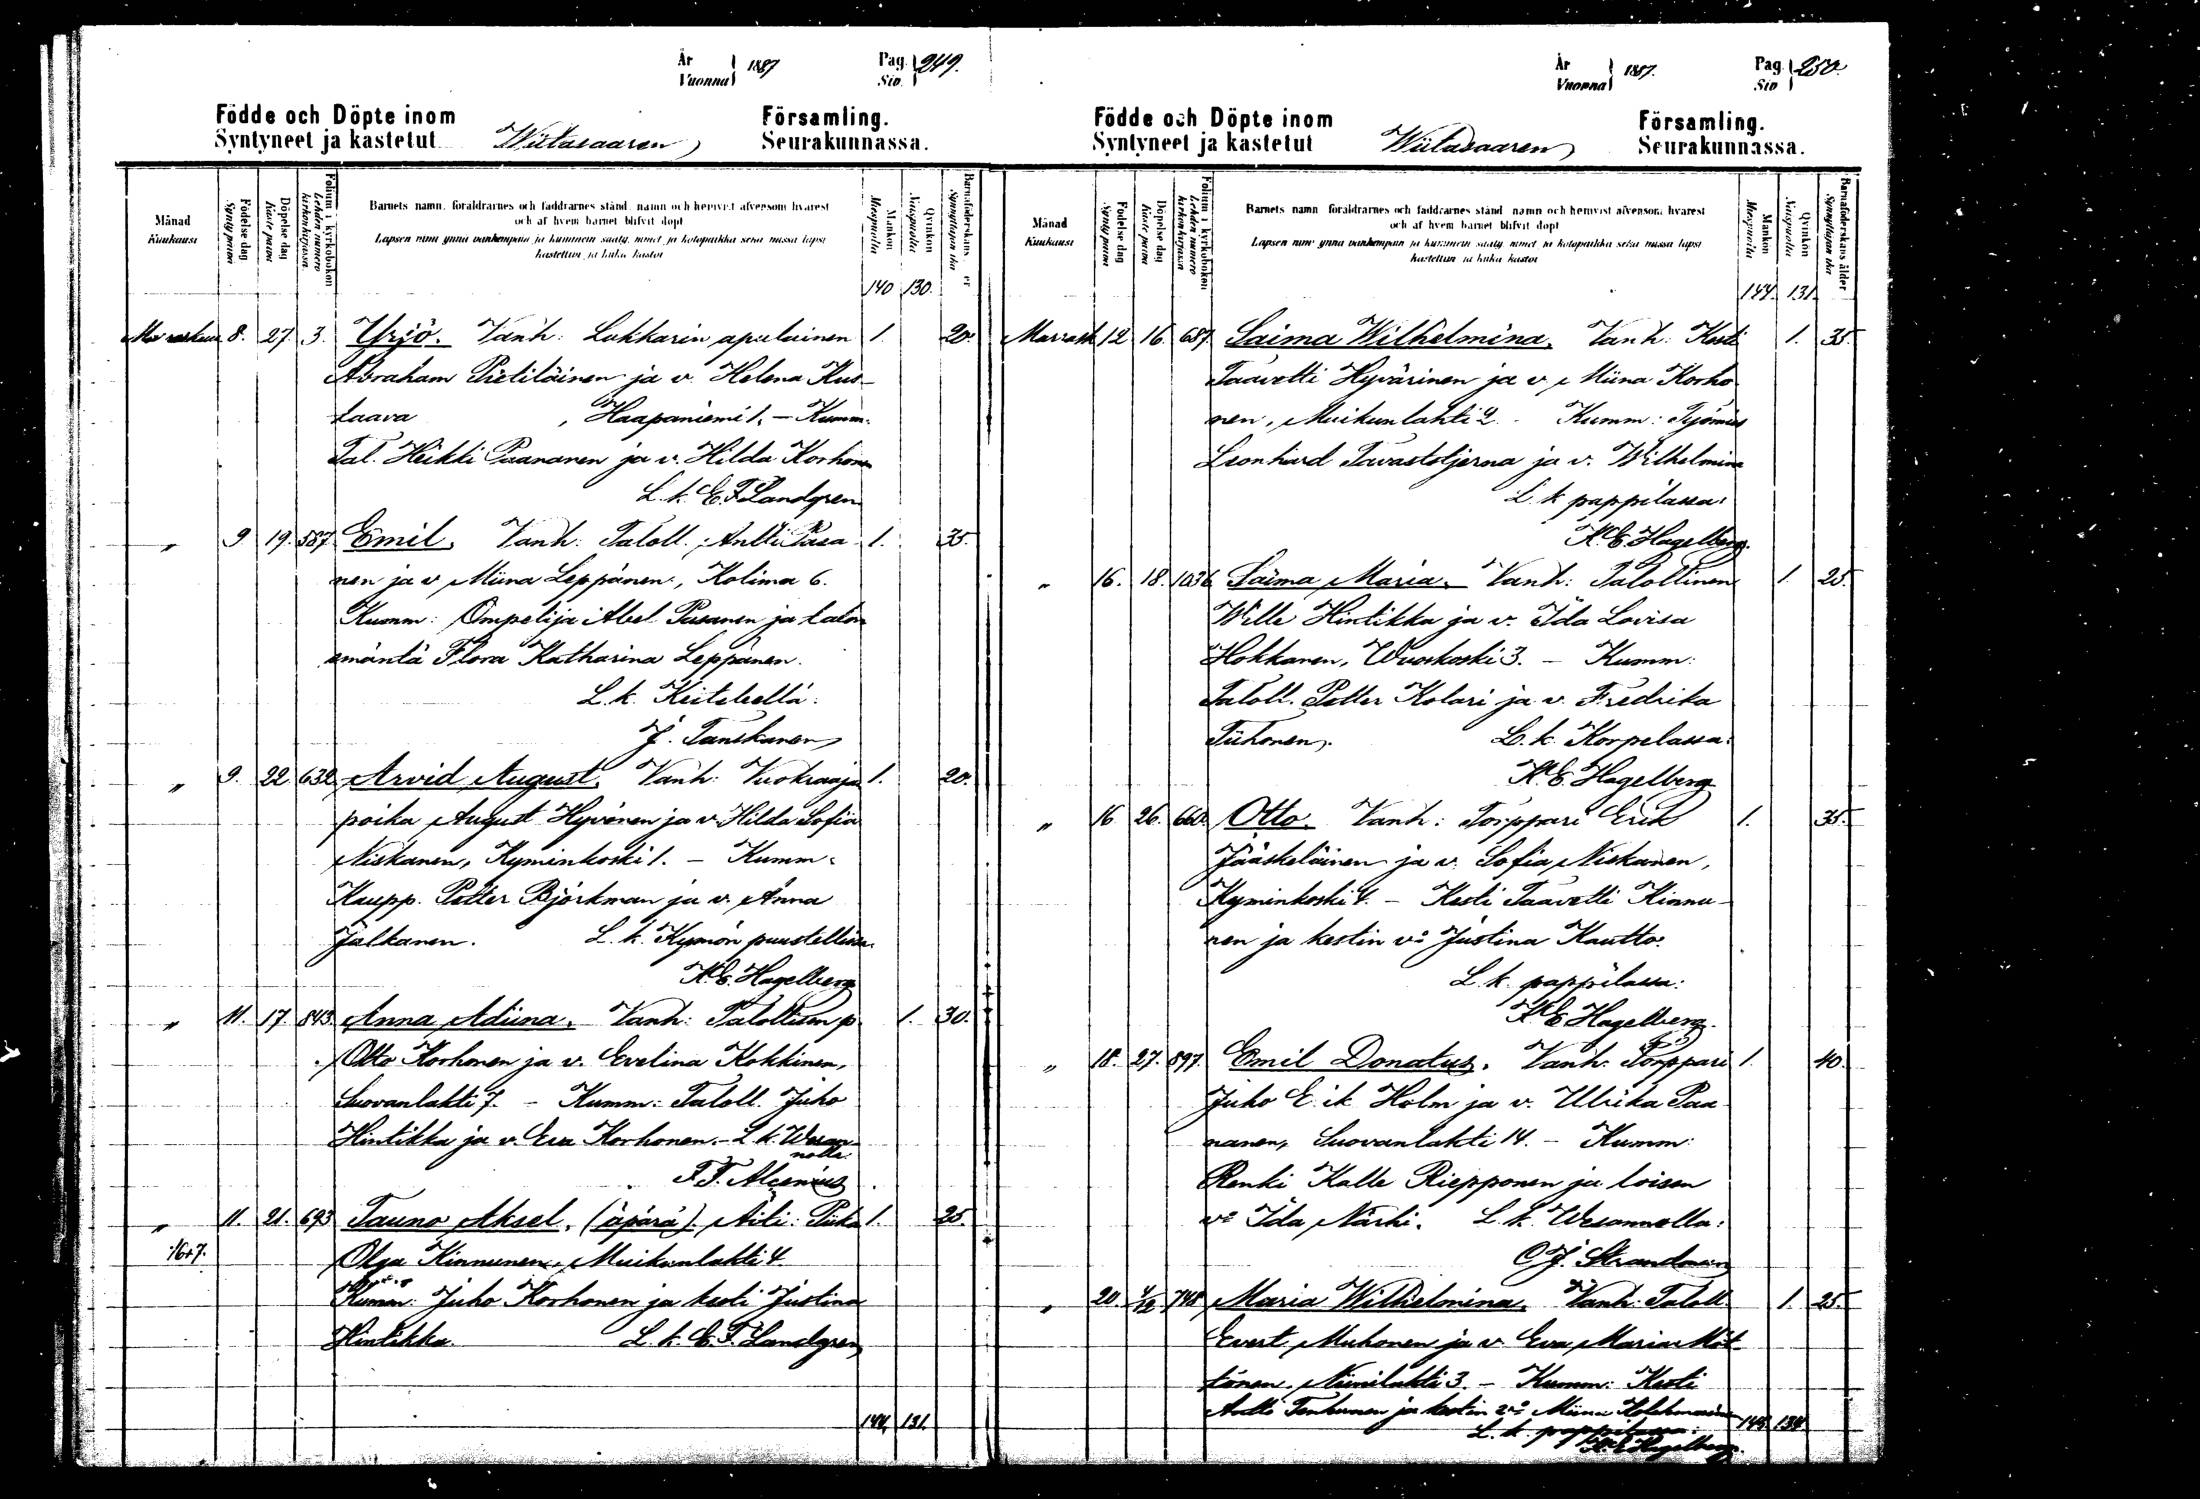 År
Vuonna } 1887
Pag.
Siv. } 249.
Födde och Döpte inom
Syntyneet ja kastetut
Wiitasaaren
Församling.
Seurakunnassa.
Månad
Kuukausi
Födelse dag
Synty päivä
Döpelse dag
Kaste päivä
Folium i kyrkoboken
Lehden numero
kirkonkirjassa
Barnets namn, föräldrarnes och faddrarnes stånd, namn och hemvist äfvensom hvarest
och af hvem barnet blifvit döpt
Lapsen nimi ynnä vanhempain ja kummein sääty, nimet ja kotopaikka sekä missä lapsi
kastettiin ja kuka kastoi
Mankön
Miespuolia
Qvinkön
Naispuolia
Barnaföderskans
Synnyttäjän ikä
140 130.
Marraskuu 8. 27. 3. Yrjö. Vanh: Lukkarin apulainen 1. 20.
Abraham Pietiläinen ja v. Helena Kus-
taava , Haapaniemi 1. – Kumm:
Tal. Heikki Paananen ja v. Hilda Korhonen
L. k. E. F. Landgren
" 9 19. 587 Emil. Vanh: Taloll. Antti Pasa- 1. 35.
nen ja v. Miina Leppänen, Kolima 6.
Kumm: Ompelija Abel Pasanen ja talon
emäntä Flora Katharina Leppänen.
L. k. Keiteleellä:
J. Tanskanen
" 9. 22 632 Arvid August. Vanh: Vuokraajan 1. 20.
poika August Hyvönen ja v. Hilda Sofia
Niskanen, Kyminkoski 1. – Kumm:
Kaupp. Petter Björkman ja v. Anna
Jalkanen. L. k. Kymön puustellissa:
K. E. Hagelberg
" 11. 17. 843. Anna Adiina. Vanh: Talollisen p. 1. 30.
Otto Korhonen ja v. Evelina Kokkinen,
Suovanlahti 7. – Kumm: Taloll. Juho
Hintikka ja v. Eva Korhonen. – L. k. Wesan-
nolla:
F. F. Alcenius
" 11. 21. 693 Tauno Aksel. (äpärä) Äiti: Piika 1. 25.
1647. Olga Kinnunen, Muikunlahti 4
Kumm: Juho Korhonen ja kesti Justina
Hintikka. L. k. E. F. Landgren
144. 131.
År
Vuonna } 1887.
Pag.
Siv } 250.
Födde och Döpte inom
Syntyneet ja kastetut
Wiitasaaren
Församling.
Seurakunnassa.
Månad
Kuukausi
Födelse dag
Synty päivä
Döpelse dag
Kaste päivä
Folium i kyrkoboken
Lehden numero
kirkonkirjassa
Barnets namn, föräldrarnes och faddrarnes stånd, namn och hemvist äfvensom hvarest
och af hvem barnet blifvit döpt
Lapsen nimi ynnä vanhempain ja kummein sääty, nimet ja kotopaikka sekä missä lapsi
kastettiin ja kuka kastoi
Mankön
Miespuolia
Qvinkön
Naispuolia
Barnaföderskans ålder
Synnyttäjän ikä
144. 131.
Marrask 12 16. 687. Saima Wilhelmina. Vanh: Kesti 1. 35.
Taavetti Hyvärinen ja v. Miina Korho-
nen, Muikunlahti 2. – Kumm: Työmies
Leonhard Tavaststjerna ja v. Wilhelmina
L. k. pappilassa:
K. E. Hagelberg.
" 16. 18. 1036 Saima Maria. Vanh: Talollinen 1. 25.
Wille Hintikka ja v. Ida Lovisa
Hokkanen, Wuoskoski 3. – Kumm:
Taloll. Petter Kolari ja v. Fredrika
Tiihonen. L. k. Korpelassa:
K. E. Hagelberg
" 16 26. 660. Otto. Vanh: Torppari Erik 1. 35.
Jääskeläinen ja v. Sofia Niskanen,
Kyminkoski 4. – Kesti Taavetti Kinnu-
nen ja kestin v:o Justina Kautto.
L. k. pappilassa:
K E Hagelberg.
" 18. 27. 897. Emil Donatus. Vanh: Torppari 1. 40.
Juho E ik Holm ja v. Ulrika Paa-
nanen, Suovanlahti 14. – Kumm:
Renki Kalle Riepponen ja loisen
v:o Ida Närhi. L. k. Wesannolla:
O J. Strandman
" 20. 4/12 748 Maria Wilhelmina. Vanh: Taloll. 1. 25.
Evert Muhonen ja v. Eva Maria Möt-
tönen, Niinilahti 3. – Kumm: Kesti
Antti Tenhunen ja kestin v:o Miina
L. k. pappilassa:
K E Hagelberg.